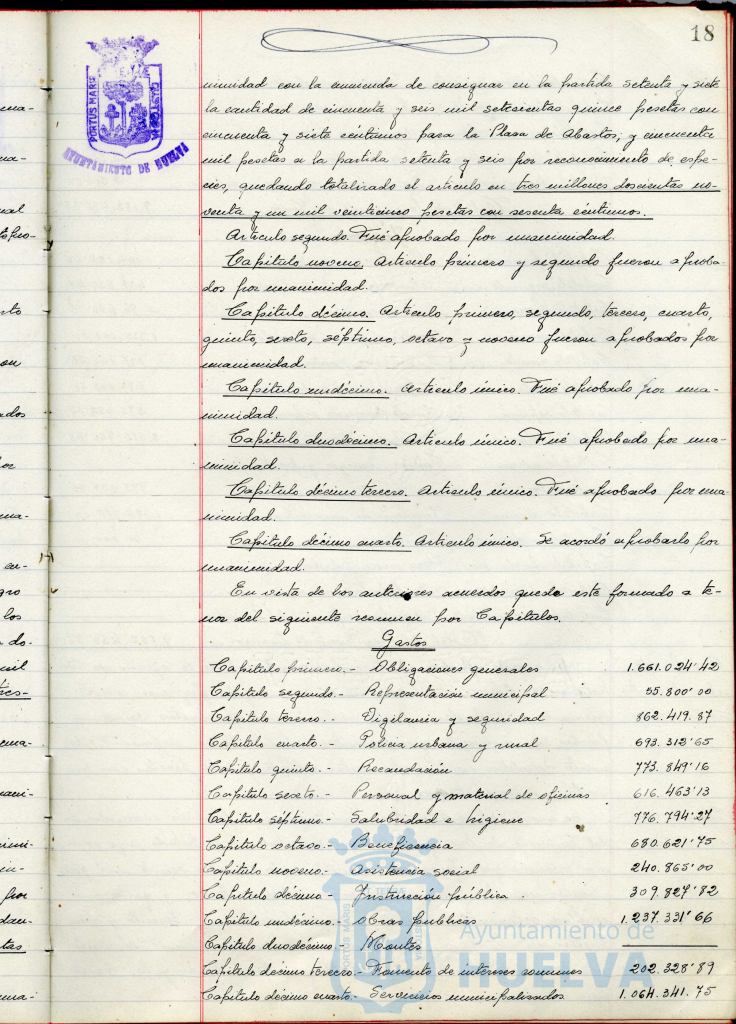 18
PORTUS MARIS
AYUNTAMIENTO DE HUELVA
nimidad con la enmienda de consignar en la partida setenta y siete
la cantidad de cincuenta y seis mil setecientas quince pesetas con
cincuenta y siete céntimos para la Plaza de Abastos, y cincuenta
mil pesetas a la partida setenta y seis por reconocimiento de espe-
cies, quedando totalizado el artículo en tres millones doscientas no-
venta y un mil veinticinco pesetas con sesenta céntimos.
Artículo segundo. Fué aprobado por unanimidad.
Capítulo noveno. Artículo primero y segundo fueron aproba-
dos por unanimidad.
Capítulo décimo. Artículo primero, segundo, tercero, cuarto,
quinto, sexto, séptimo, octavo y noveno fueron aprobados por
unanimidad.
Capítulo undécimo. Artículo único. Fué aprobado por una-
nimidad.
Capítulo duodécimo. Artículo único. Fué aprobado por una-
nimidad.
Capítulo décimo tercero. Artículo único. Fué aprobado por una
nimidad.
Capítulo décimo cuarto. Artículo único. Se acordó aprobarlo por
unanimidad.
En vista de los anteriores acuerdos queda este formado a te-
nor del siguiente resumen por Capítulos.
Gastos
Capítulo primero.- Obligaciones generales 1.661.024'42
Capítulo segundo.- Representación municipal 55.800'00
Capítulo tercero.- Vigilancia y seguridad 862.419.87
Capítulo cuarto.- Policía urbana y rural 693.312'65
Capítulo quinto.- Recaudación 773.849'16
Capítulo sexto.- Personal y material de oficinas 616.463'13
Capítulo séptimo.- Salubridad e higiene 776.794'27
Capítulo octavo.- Beneficencia 680.621'75
Capítulo noveno.- Asistencia social 240.865'00
Capítulo décimo.- Instrucción pública 309.827'82
Capítulo undécimo.- Obras públicas 1.237.331'66
Capítulo duodécimo Montes
Capítulo décimo tercero.- Fomento de intereses comunes 202.328'89
Capítulo décimo cuarto.- Servicios municipalizados 1.064.341.75
Ayuntamiento de
HUELVA